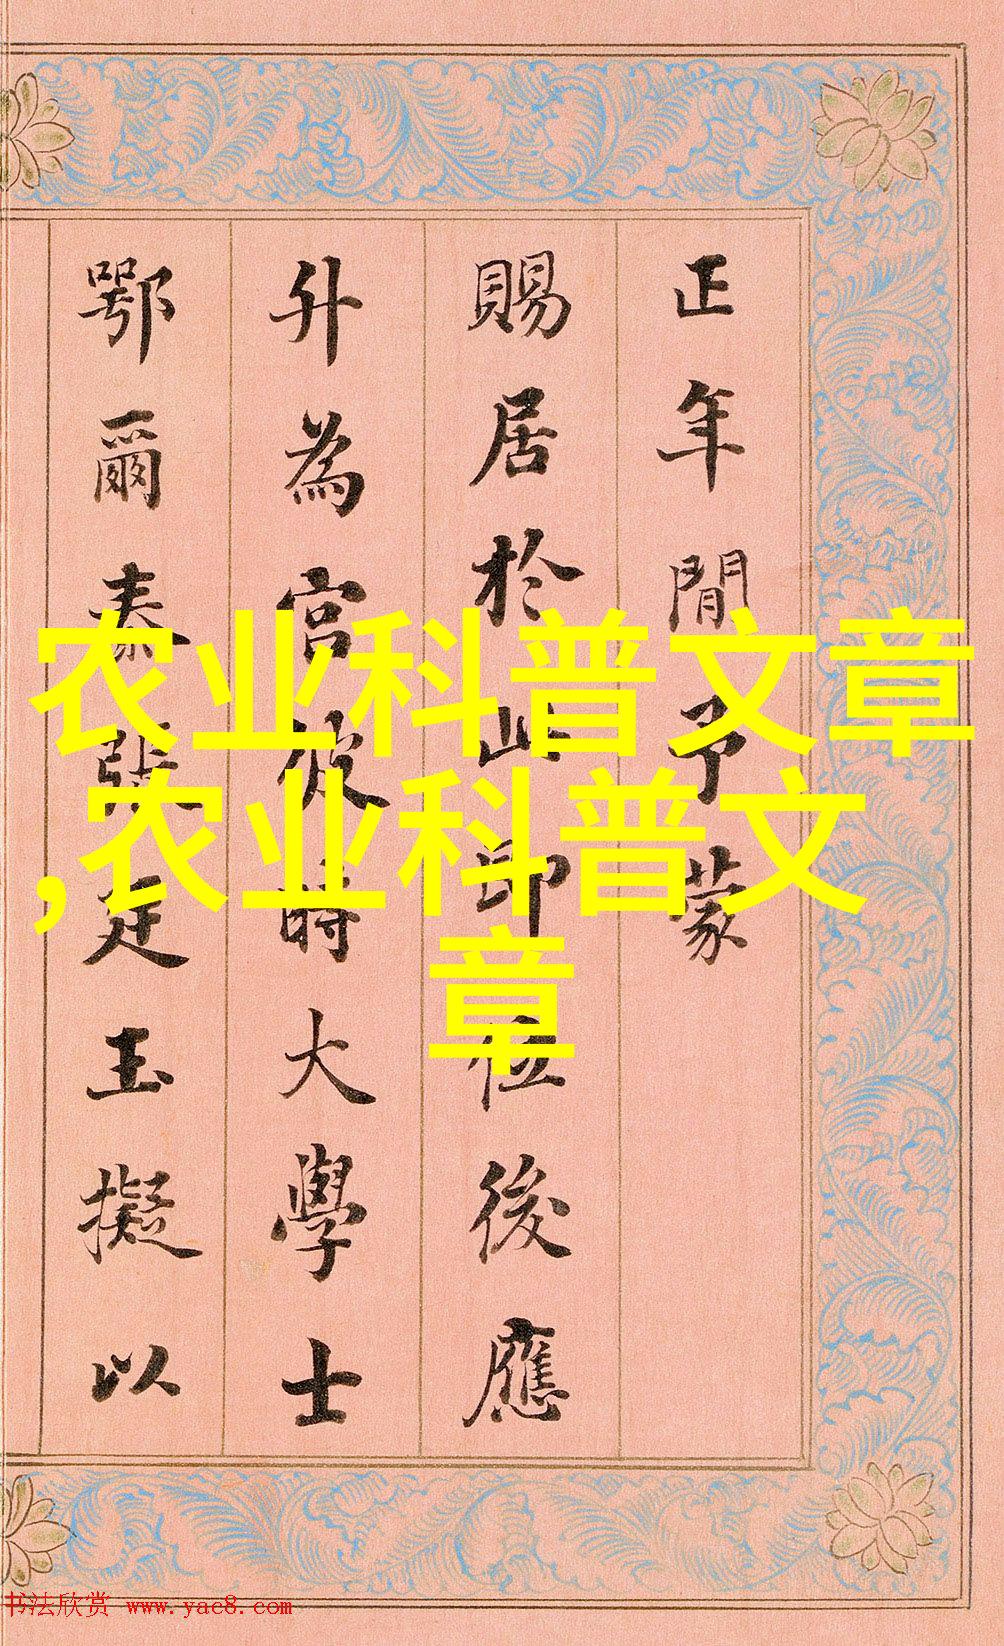 正年間予蒙
賜居於此即位後應
升為宮彼時大學士
鄂爾泰張廷玉擬以
农业科普文章
,农业科普文
章
书法欣赏 www.yac8.com